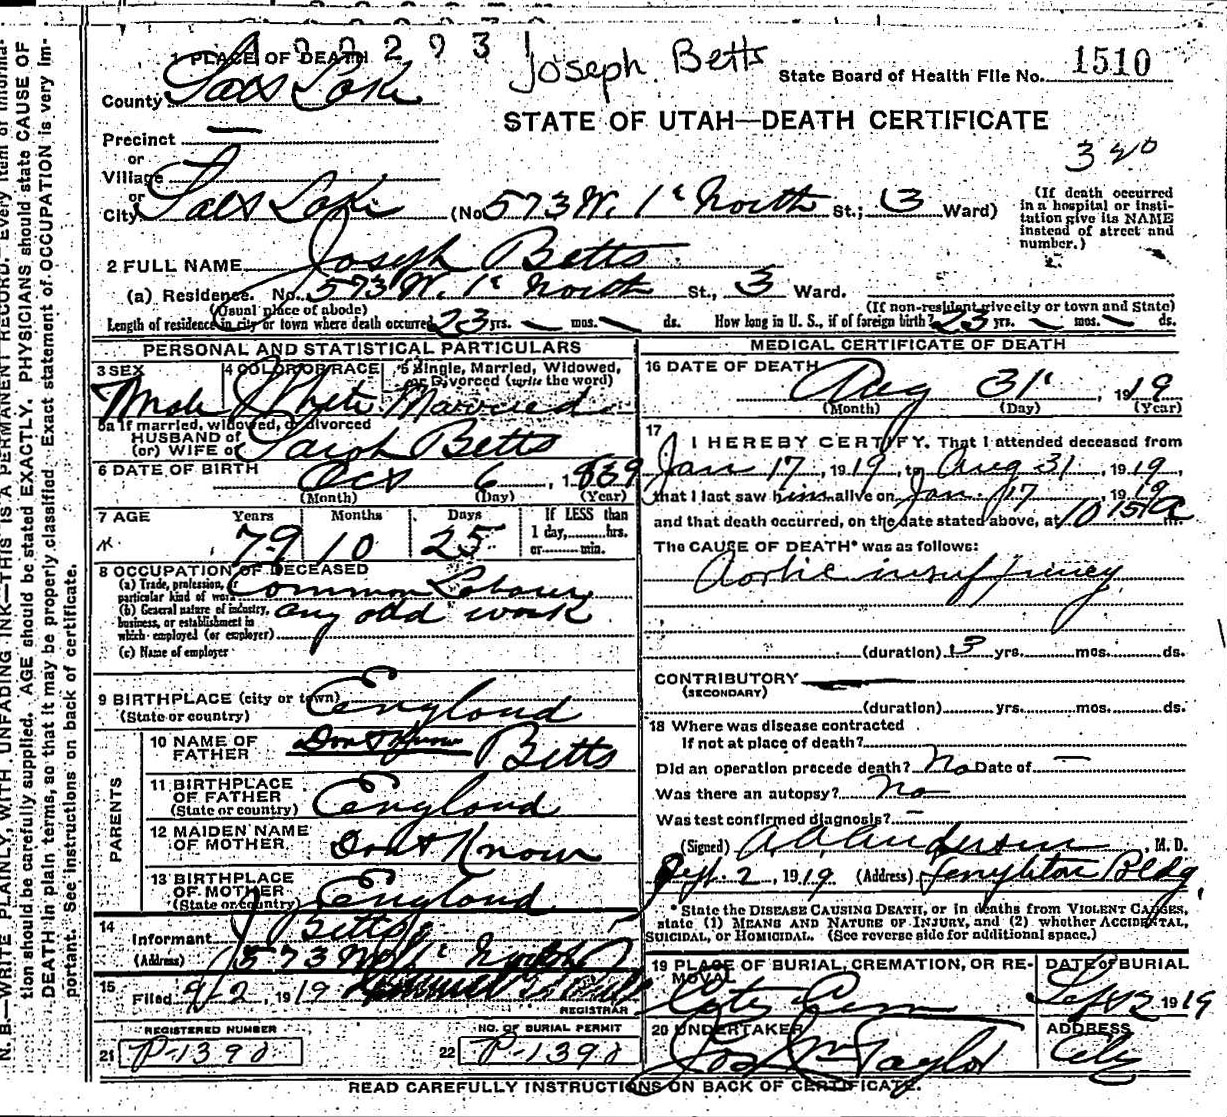 Joseph Betts
1 PLACE OF DEATH
State Board of Health File No. 1510
County Salt Lake
STATE OF UTAH—DEATH CERTIFICATE
Precinct —
or
Village
or
City Salt Lake (No 573 W. 1st North St.; 3 Ward)
(If death occurred in a hospital or insti-
tution give its NAME
instead of street and
number.)
2 FULL NAME Joseph Betts
(a) Residence. No. 573 W. 1st North St., 3 Ward.
(Usual place of abode) (If non-resident give city or town and State)
Length of residence in city or town where death occurred 23 yrs. — mos. — ds. How long in U. S., if of foreign birth? 23 yrs. — mos. — ds.
PERSONAL AND STATISTICAL PARTICULARS
3 SEX Male
4 COLOR OR RACE White
5 Single, Married, Widowed,
or Divorced (write the word) Married
5a If married, widowed, or divorced
HUSBAND of
(or) WIFE of Sarah Betts
6 DATE OF BIRTH Oct 6, 1839
(Month) (Day) (Year)
7 AGE Years Months Days If LESS than
1 day, hrs.
or min.
79 10 25
8 OCCUPATION OF DECEASED
(a) Trade, profession, or
particular kind of work Common Labour
(b) General nature of industry,
business, or establishment in
which employed (or employer) any odd work
(c) Name of employer
9 BIRTHPLACE (city or town)
(State or country) England
PARENTS
10 NAME OF
FATHER Dont Know Betts
11 BIRTHPLACE
OF FATHER
(State or country) England
12 MAIDEN NAME
OF MOTHER Dont Know
13 BIRTHPLACE
OF MOTHER
(State or country) England
14
Informant J Betts
(Address) 573 W 1st North
15
Filed 9/2, 1919
REGISTRAR
REGISTERED NUMBER
21 P-1390
NO. OF BURIAL PERMIT
22 P-1390
MEDICAL CERTIFICATE OF DEATH
16 DATE OF DEATH Aug 31st, 1919
(Month) (Day) (Year)
17
I HEREBY CERTIFY, That I attended deceased from
Jan 17, 1919, to Aug 31, 1919,
that I last saw him alive on Jan. 17, 1919
and that death occurred, on the date stated above, at 10 15 A m.
The CAUSE OF DEATH* was as follows:
Aortic insufficiency
(duration) 3 yrs. mos. ds.
CONTRIBUTORY
(SECONDARY)
(duration) yrs. mos. ds.
18 Where was disease contracted
If not at place of death?
Did an operation precede death? No Date of —
Was there an autopsy? No
Was test confirmed diagnosis? —
(Signed) A. A. Anderson, M. D.
Sept. 2, 1919 (Address) Templeton Bldg.
* State the DISEASE CAUSING DEATH, or in deaths from VIOLENT CAUSES,
state (1) MEANS AND NATURE OF INJURY, and (2) whether ACCIDENTAL,
SUICIDAL, or HOMICIDAL. (See reverse side for additional space.)
19 PLACE OF BURIAL, CREMATION, OR RE-
MOVAL City Cem
DATE of BURIAL
Sept 2 1919
20 UNDERTAKER Jos Wm Taylor
ADDRESS
City
READ CAREFULLY INSTRUCTIONS ON BACK OF CERTIFICATE.
N. B.—WRITE PLAINLY, WITH UNFADING INK—THIS IS A PERMANENT RECORD. Every item of informa-
tion should be carefully supplied. AGE should be stated EXACTLY. PHYSICIANS should state CAUSE OF
DEATH in plain terms, so that it may be properly classified. Exact statement of OCCUPATION is very im-
portant. See instructions on back of certificate.